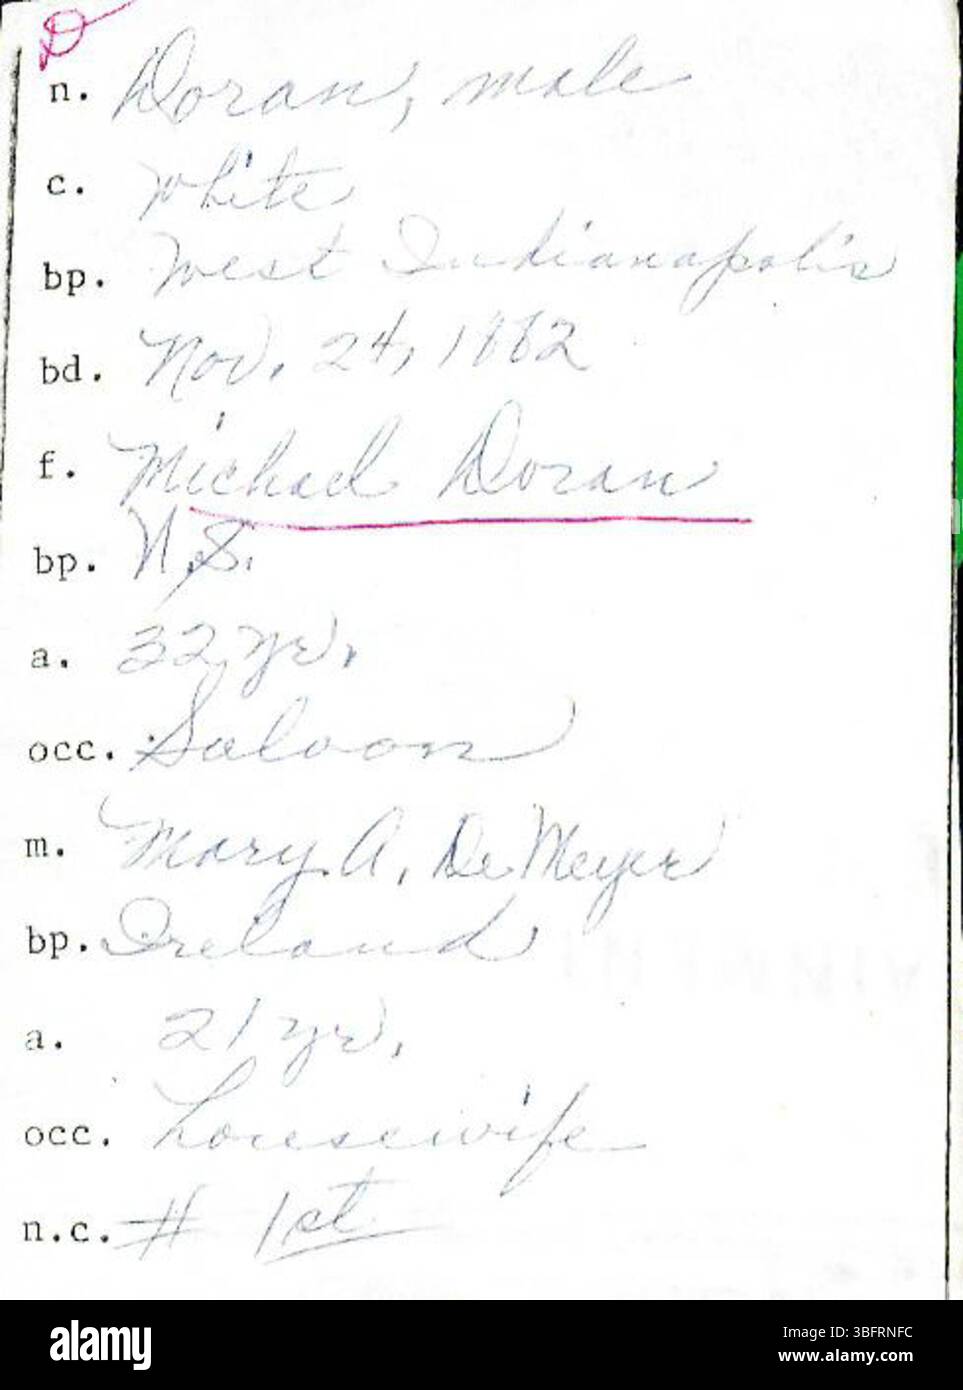 D
n. Doran, male
c. White
bp. West Indianapolis
bd. Nov. 24, 1882
f. Michael Doran
bp. N.S.
a. 32 yr.
occ. Saloon
m. Mary A. De Meyer
bp. Ireland
a. 21 yr.
occ. housewife
n.c. # 1st
alamy
Image ID: 3BFRNFC
www.alamy.com